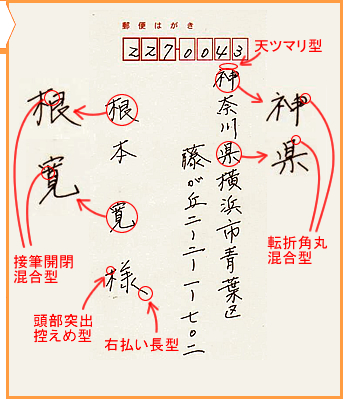 郵便はがき
227-0043
天ツマリ型
神奈川県横浜市青葉区
藤が丘二ー二ー一ー七〇二
根本 寛 様
神
県
転折角丸
混合型
根
寛
接筆開閉
混合型
頭部突出
控えめ型
右払い長型